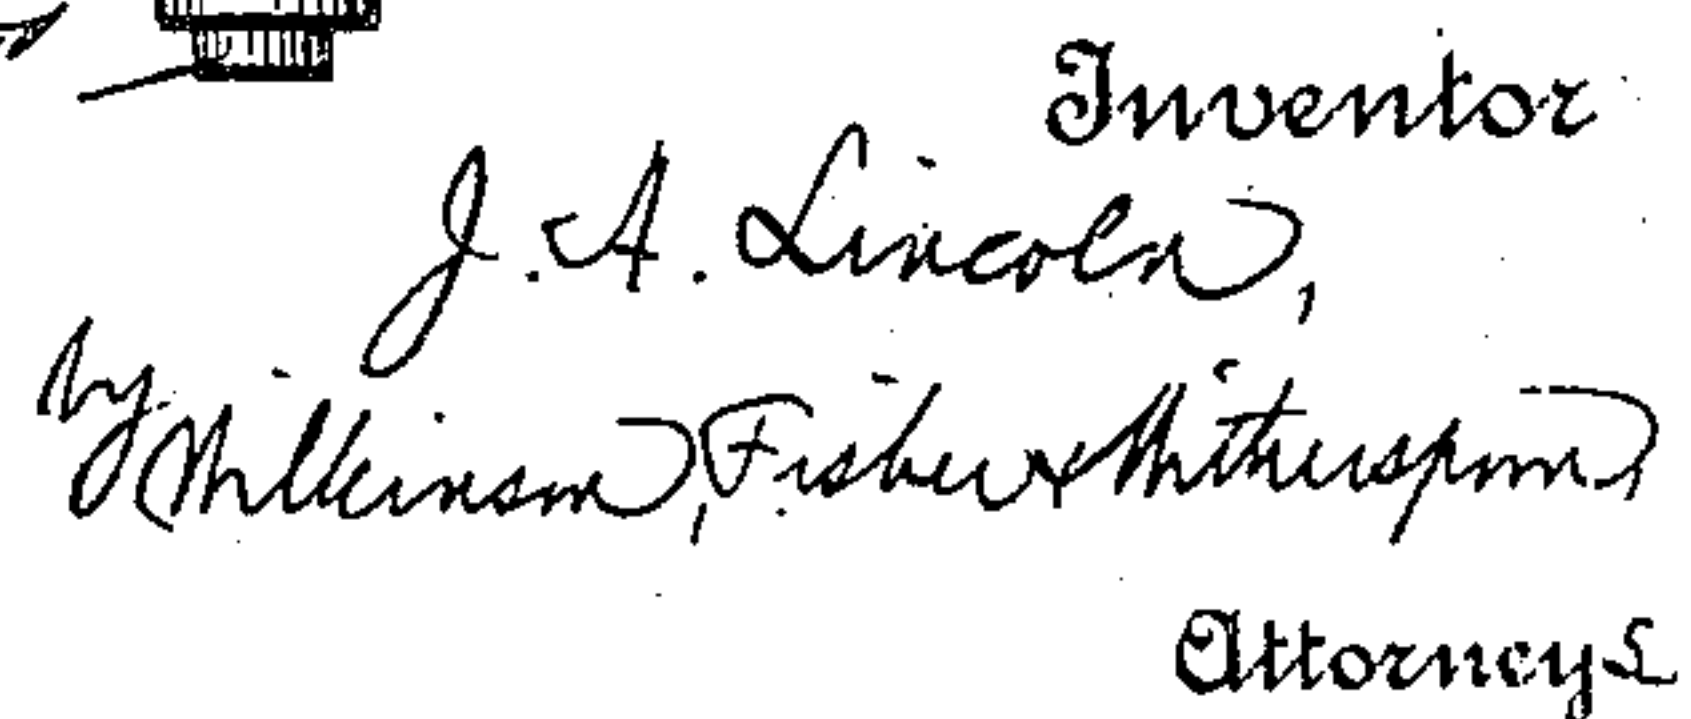 Inventor
J. A. Lincoln,
by Wilkinson, Fisher & Witherspoon,
Attorneys